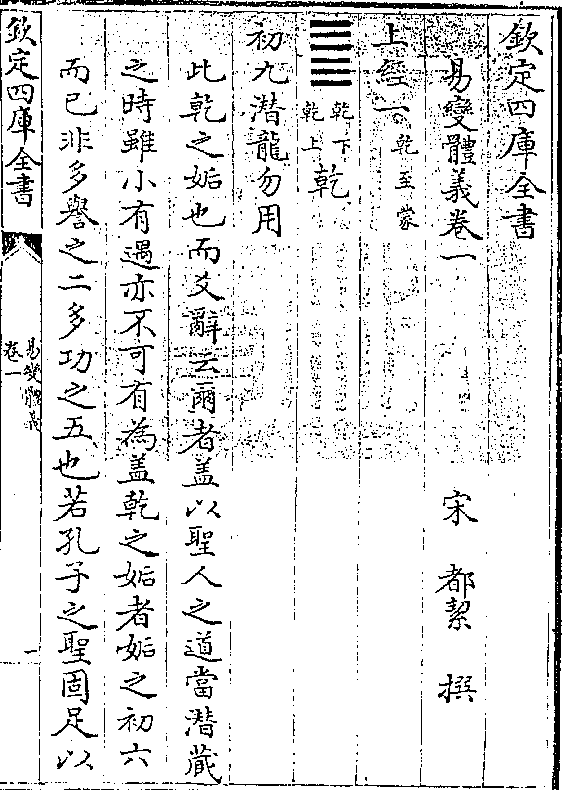 欽定四庫全書
易變體義卷一
宋 都絜 撰
上經一 乾至蒙
乾下
乾上
乾
初九潛龍勿用
此乾之姤也而爻辭云爾者盖以聖人之道當潛藏
之時雖小有遇亦不可有為盖乾之姤者姤之初六
而已非多譽之二多功之五也若孔子之聖固足以
欽定四庫全書
易變體義
卷一
一